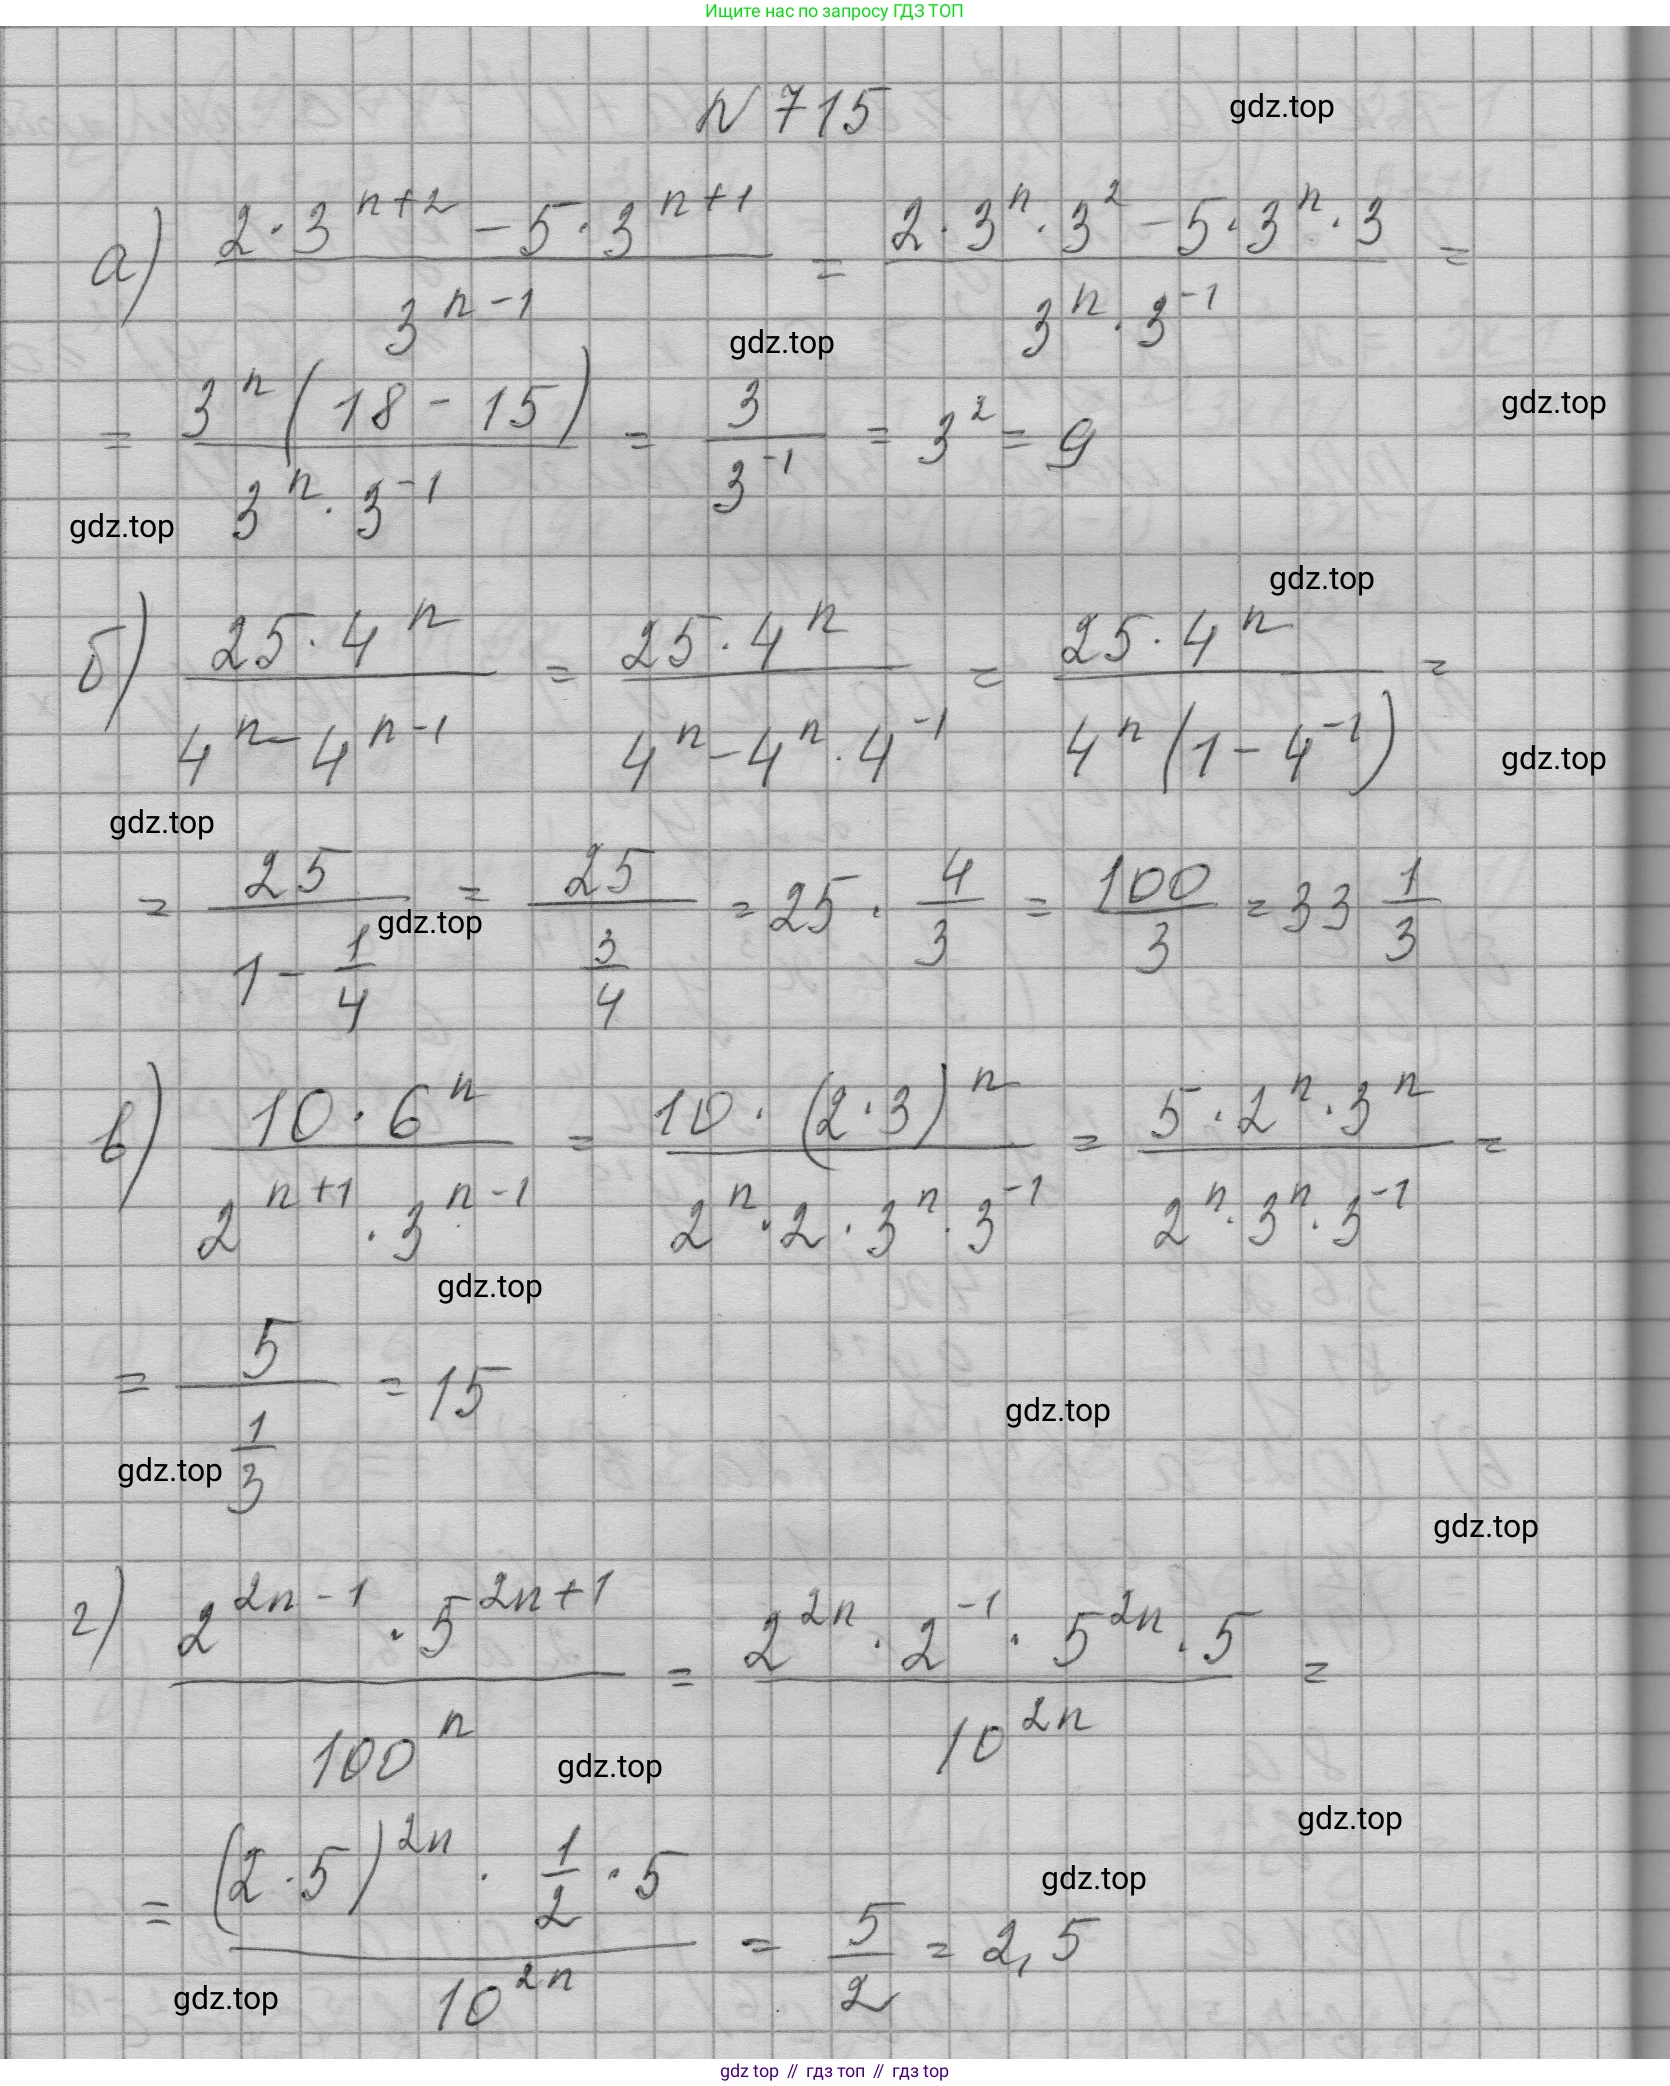 Ищите нас по запросу ГДЗ ТОП
N 715
gdz.top
а) \frac{2·3^{n+2} - 5·3^{n+1}}{3^{n-1}} = \frac{2·3^n·3^2 - 5·3^n·3}{3^n·3^{-1}} =
gdz.top
= \frac{3^n(18-15)}{3^n·3^{-1}} = \frac{3}{3^{-1}} = 3^2 = 9
gdz.top
gdz.top
gdz.top
б) \frac{25·4^n}{4^n - 4^{n-1}} = \frac{25·4^n}{4^n - 4^n·4^{-1}} = \frac{25·4^n}{4^n(1-4^{-1})} =
gdz.top
gdz.top
= \frac{25}{1-\frac{1}{4}} = \frac{25}{\frac{3}{4}} = 25·\frac{4}{3} = \frac{100}{3} = 33\frac{1}{3}
gdz.top
в) \frac{10·6^n}{2^{n+1}·3^{n-1}} = \frac{10·(2·3)^n}{2^n·2·3^n·3^{-1}} = \frac{5·2^n·3^n}{2^n·3^n·3^{-1}} =
gdz.top
= \frac{5}{\frac{1}{3}} = 15
gdz.top
gdz.top
gdz.top
г) \frac{2^{2n-1}·5^{2n+1}}{100^n} = \frac{2^{2n}·2^{-1}·5^{2n}·5}{10^{2n}} =
gdz.top
gdz.top
= \frac{(2·5)^{2n}·\frac{1}{2}·5}{10^{2n}} = \frac{5}{2} = 2,5
gdz.top
gdz.top
gdz top // гдз топ // гдз top